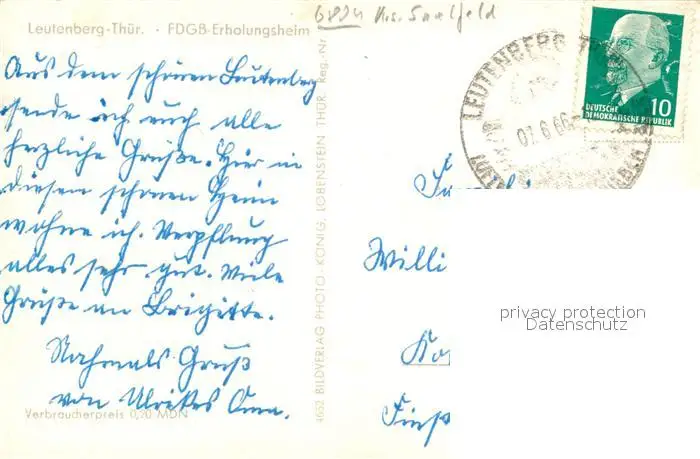 6824 Krs. Saalfeld
Leutenberg-Thür. · FDGB-Erholungsheim
Aus dem schönen Leutenberg
sende ich euch alle
herzliche Grüße. Hier in
diesem schönen Heim
wohne ich. Verpflung
alles sehr gut. Viele
Grüße an Brigitte.
Nahmals Gruß
von Ulrikes Oma.
Verbraucherpreis 0,20 MDN
4652 BILDVERLAG PHOTO-KÖNIG, LOBENSTEIN THÜR. Reg.-Nr.
LEUTENBERG
07.6.66
DEUTSCHE
DEMOKRATISCHE REPUBLIK
10
Willi
privacy protection
Datenschutz